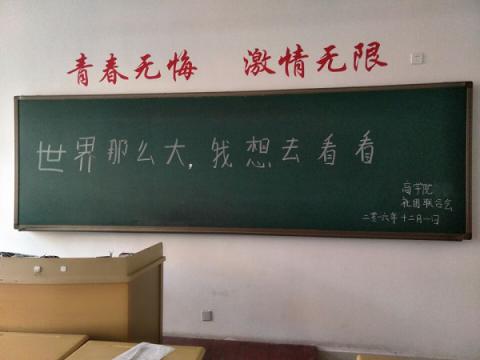 青春无悔 激情无限
世界那么大,我想去看看
商学院
社团联合会
二零一六年十二月一日